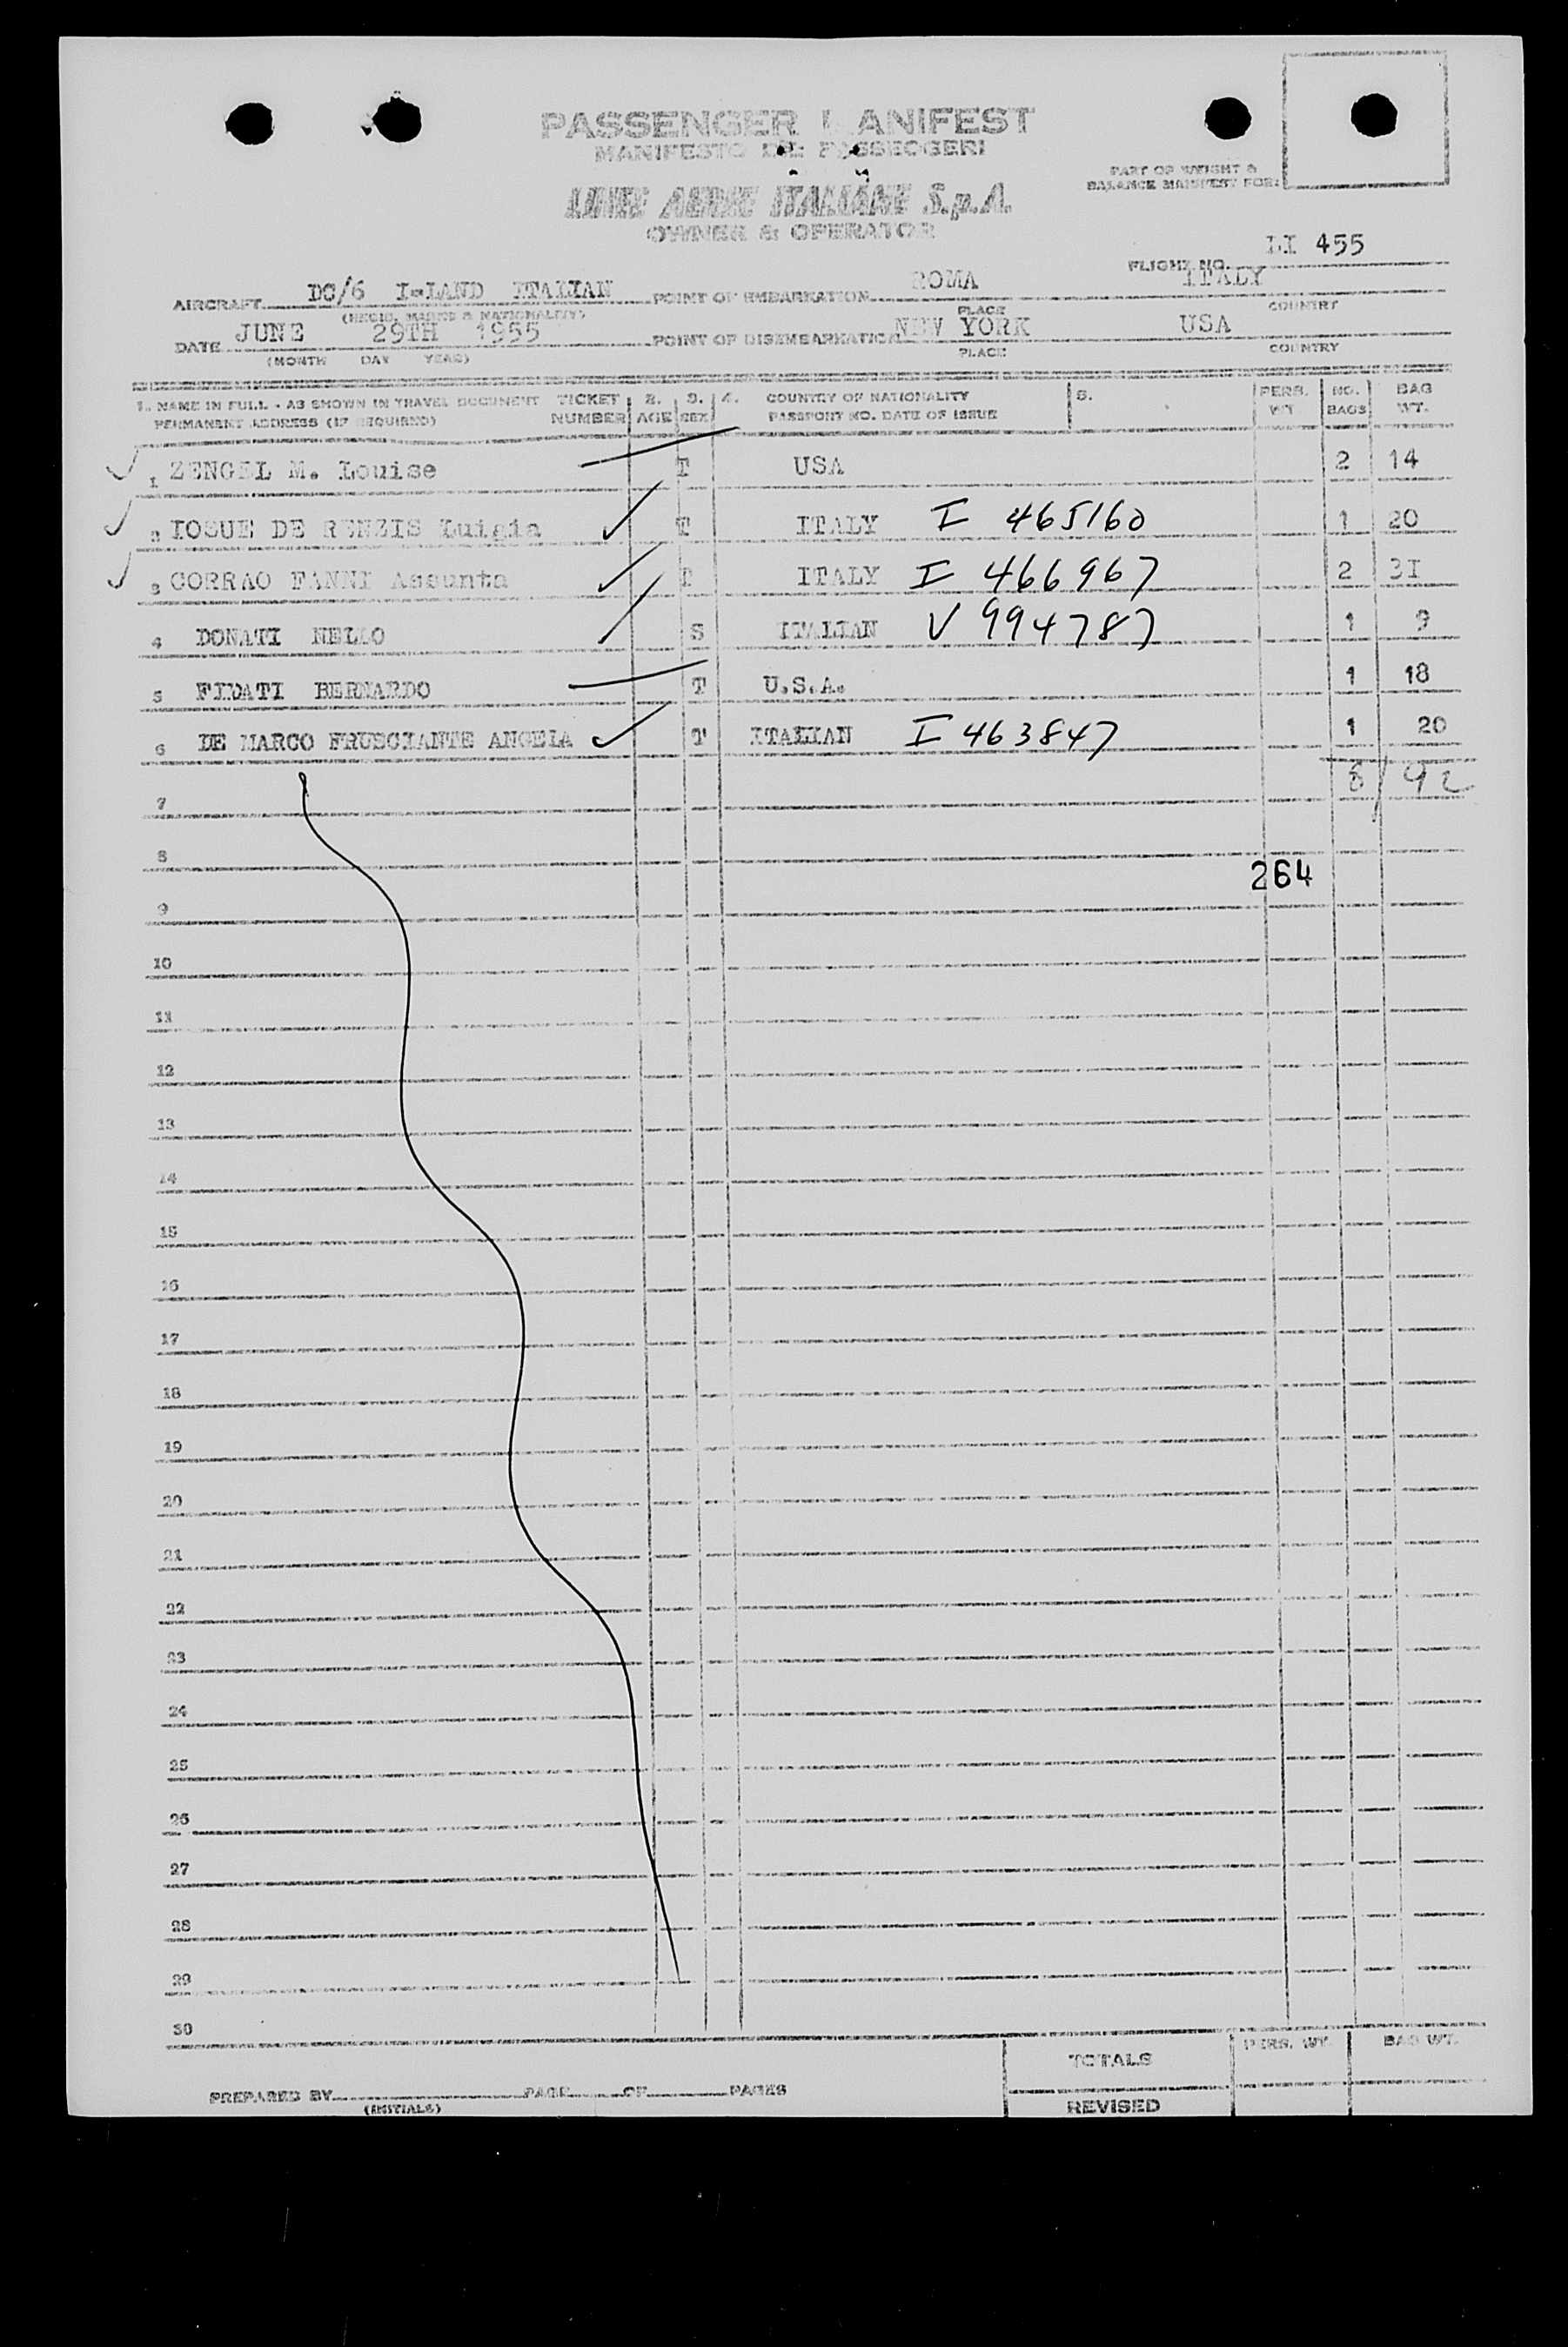 PASSENGER MANIFEST
MANIFESTO DEI PASSEGGERI
LINEE AEREE ITALIANE S.p.A.
OWNER & OPERATOR
PART OF WEIGHT &
BALANCE MANIFEST FOR:
LI 455
FLIGHT NO.
AIRCRAFT DC/6 I-LAND ITALIAN POINT OF EMBARKATION ROMA ITALY
(REGIS. MARKS & NATIONALITY) PLACE COUNTRY
DATE JUNE 29TH 1955 POINT OF DISEMBARKATION NEW YORK USA
(MONTH DAY YEAR) PLACE COUNTRY
1. NAME IN FULL - AS SHOWN IN TRAVEL DOCUMENT TICKET 2. 3. 4. COUNTRY OF NATIONALITY 5. PERS. NO. BAG
PERMANENT ADDRESS (IF REQUIRED) NUMBER AGE SEX PASSPORT NO. DATE OF ISSUE WT BAGS WT.
1 ZENGEL M. Louise T USA 2 14
2 IOSUE DE RENZIS Luigia T ITALY I 465160 1 20
3 CORRAO FANNI Assunta T ITALY I 466967 2 3I
4 DONATI NELLO S ITALIAN V 994787 1 9
5 FIDATI BERNARDO T U.S.A. 1 18
6 DE MARCO FRUSCIANTE ANGELA T ITALIAN I 463847 1 20
8/92
7
8
264
9
10
11
12
13
14
15
16
17
18
19
20
21
22
23
24
25
26
27
28
29
30
TOTALS PERS. WT. BAG WT.
PREPARED BY PAGE OF PAGES
(INITIALS)
REVISED